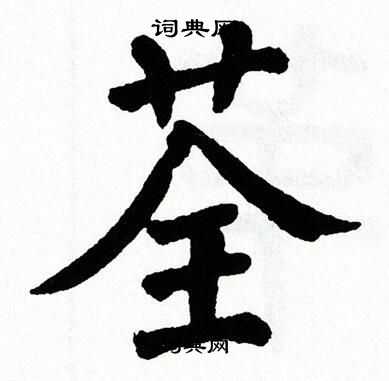 词典网
荃
词典网